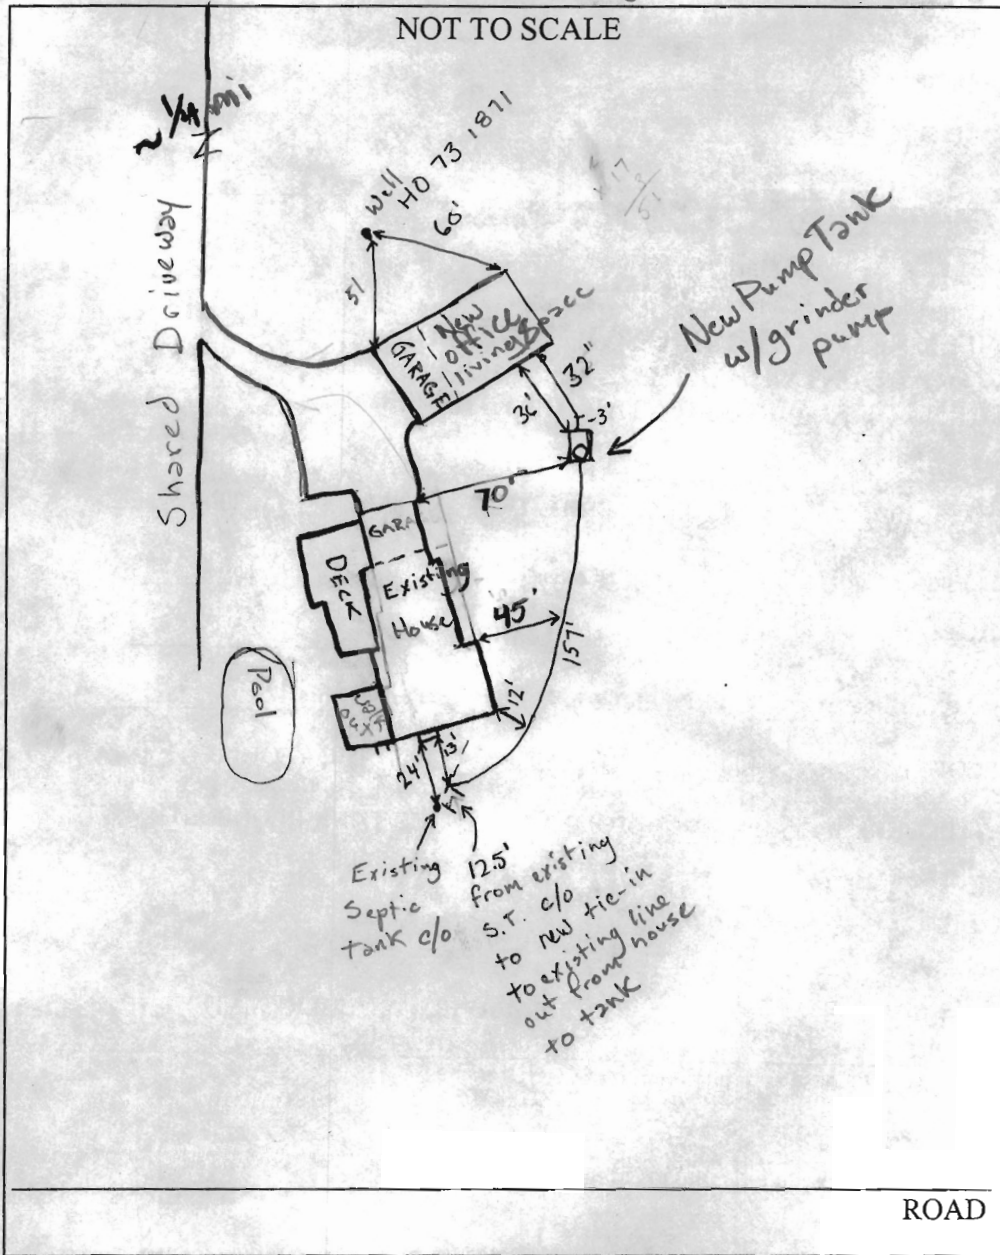 NOT TO SCALE
~ 1/4 mi
Shared Driveway
Well
HO 73 1871
60'
51
New
office
living space
GARAGE
New Pump Tank
w/grinder
pump
32"
36'
-3'
70'
GARA
DECK
Existing
House
45'
157'
12'
Pool
walk
out
24'
13'
Existing
Septic
tank c/o
12.5'
from existing
S.T. c/o
to new tie-in
to existing line
out from house
to tank
ROAD